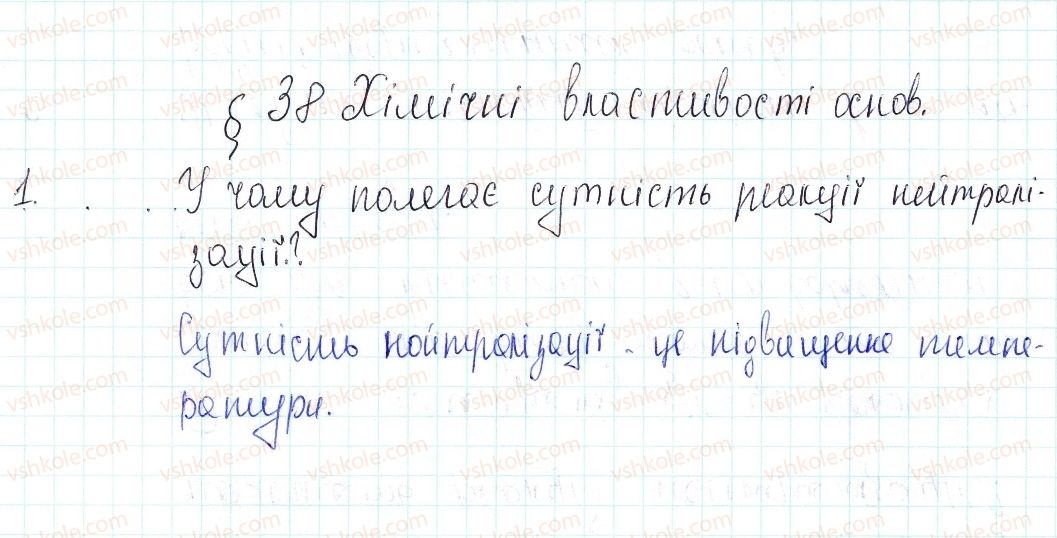 § 38 Хімічні властивості основ.
1. У чому полягає сутність реакції нейтралі-
зації?
Сутність нейтралізації - це підвищення темпе-
ратури.